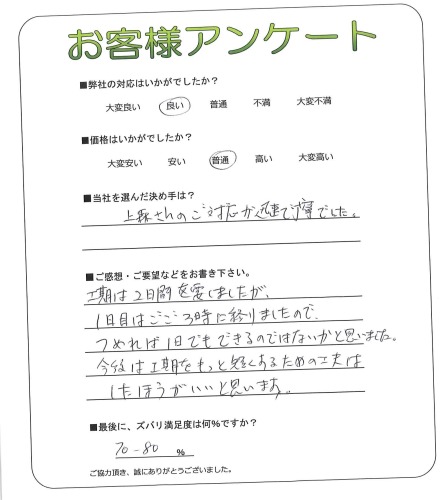 お客様アンケート
■弊社の対応はいかがでしたか?
大変良い 良い 普通 不満 大変不満
■価格はいかがでしたか?
大変安い 安い 普通 高い 大変高い
■当社を選んだ決め手は?
上森さんのご対応が迅速で丁寧でした。
■ご感想・ご要望などをお書き下さい。
工期は2日間を要しましたが、
1日目はごご3時に終りましたので、
つめれば1日でもできるのではないかと思いました。
今後は工期をもっと短くするための工夫は
したほうがいいと思います。
■最後に、ズバリ満足度は何%ですか?
70-80 %
ご協力頂き、誠にありがとうございました。